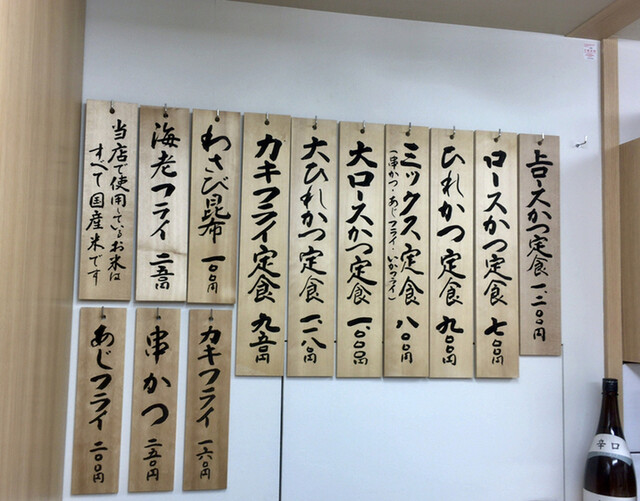 上ロースかつ定食 一、二〇〇円
ロースかつ定食 七〇〇円
ひれかつ定食 九〇〇円
ミックス定食 八〇〇円
(串かつ・あじフライ・いかフライ)
大ロースかつ定食 一、〇〇〇円
大ひれかつ定食 一、一八〇円
カキフライ定食 九五〇円
わさび昆布 一〇〇円
海老フライ 二五〇円
当店で使用しているお米は
すべて国産米です
カキフライ 一六〇円
串かつ 二五〇円
あじフライ 二〇〇円
辛口